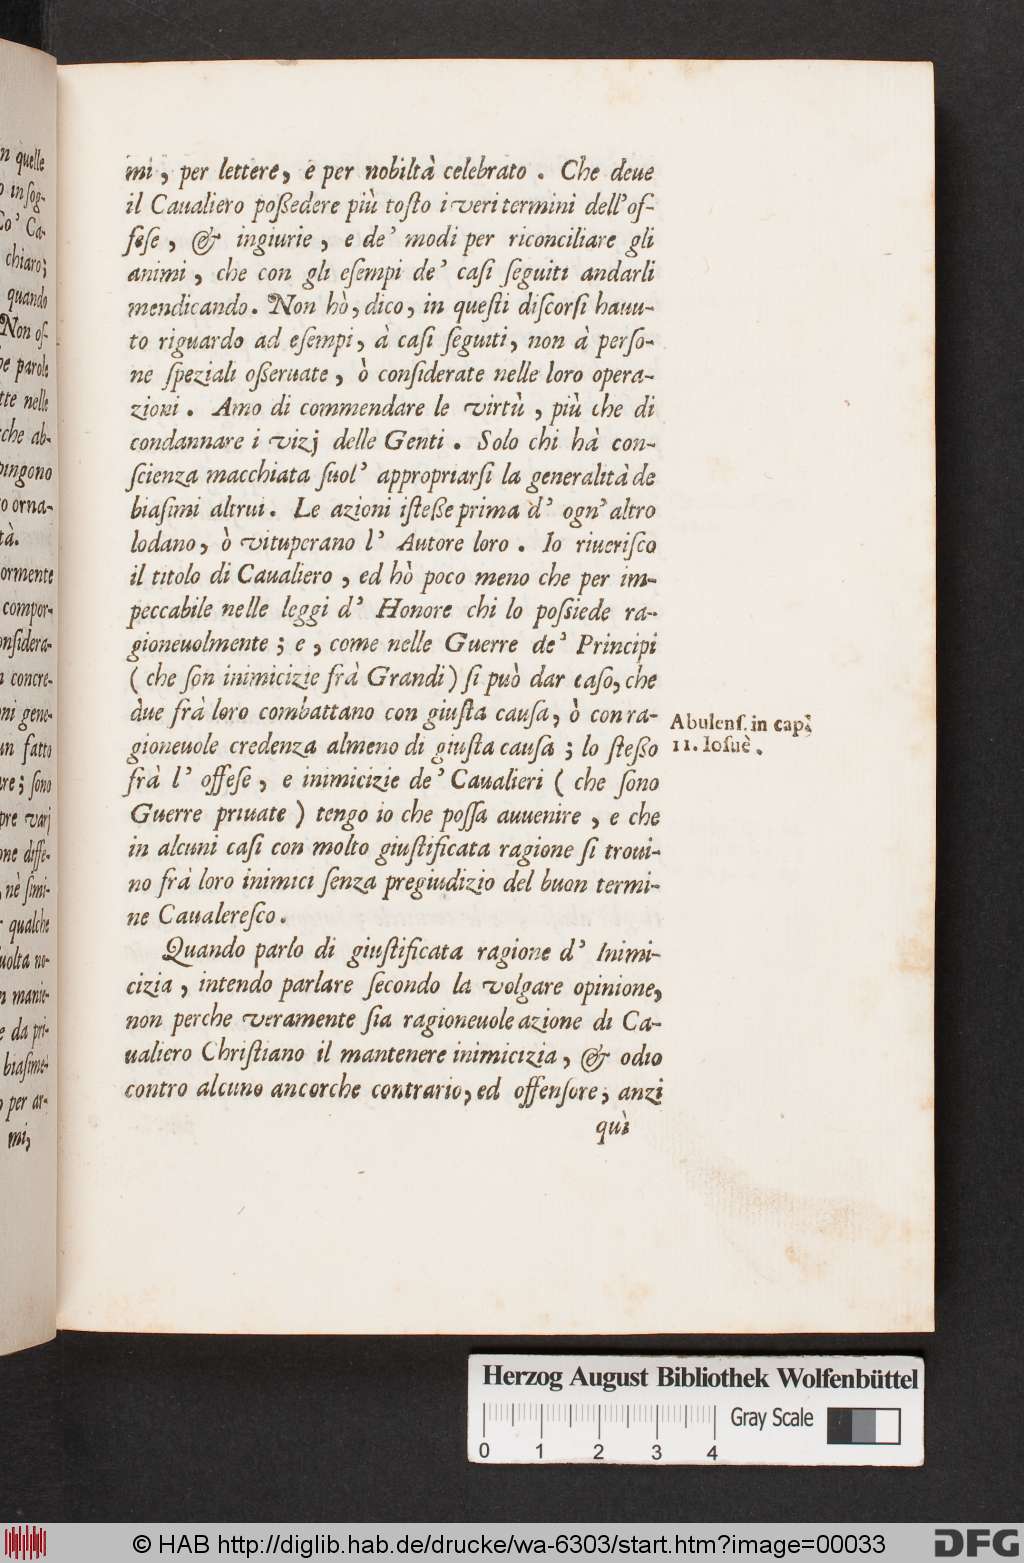 mi, per lettere, e per nobiltà celebrato. Che deue
il Caualiero poßedere più toſto i veri termini dell'of-
feſe, & ingiurie, e de' modi per riconciliare gli
animi, che con gli eſempi de' caſi ſeguiti andarli
mendicando. Non hò, dico, in queſti diſcorſi hauu-
to riguardo ad eſempi, à caſi ſeguiti, non à perſo-
ne ſpeziali oßeruate, ò conſiderate nelle loro opera-
zioni. Amo di commendare le virtù, più che di
condannare i vizj delle Genti. Solo chi hà con-
ſcienza macchiata ſuol' appropriarſi la generalità de
biaſimi altrui. Le azioni iſteße prima d' ogn' altro
lodano, ò vituperano l' Autore loro. Io riueriſco
il titolo di Caualiero, ed hò poco meno che per im-
peccabile nelle leggi d' Honore chi lo poſsiede ra-
gioneuolmente; e, come nelle Guerre de' Principi
(che ſon inimicizie frà Grandi) ſi può dar caſo, che
due frà loro combattano con giuſta cauſa, ò con ra-
gioneuole credenza almeno di giuſta cauſa; lo ſteßo
frà l' offeſe, e inimicizie de' Caualieri (che ſono
Guerre priuate) tengo io che poſſa auuenire, e che
in alcuni caſi con molto giuſtificata ragione ſi troui-
no frà loro inimici ſenza pregiudizio del buon termi-
ne Caualereſco.
Quando parlo di giuſtificata ragione d' Inimi-
cizia, intendo parlare ſecondo la volgare opinione,
non perche veramente ſia ragioneuole azione di Ca-
ualiero Chriſtiano il mantenere inimicizia, & odio
contro alcuno ancorche contrario, ed offenſore, anzi
quì
Abulenſ. in cap.
11. Ioſuè.
n quelle
o in ſog-
Co' Ca-
chiaro;
quando
Non oſ-
he parole
tte nelle
che ab-
pingono
o orna-
tà.
ormente
compor-
onſidera-
n concre-
ni gene-
un fatto
re; ſono
pre varj
one diffe-
, nè ſimi-
r qualche
uolta no-
n manie-
e da pri-
biaſime-
o per ar-
mi,
Herzog August Bibliothek Wolfenbüttel
Gray Scale
0 1 2 3 4
© HAB http://diglib.hab.de/drucke/wa-6303/start.htm?image=00033
DFG